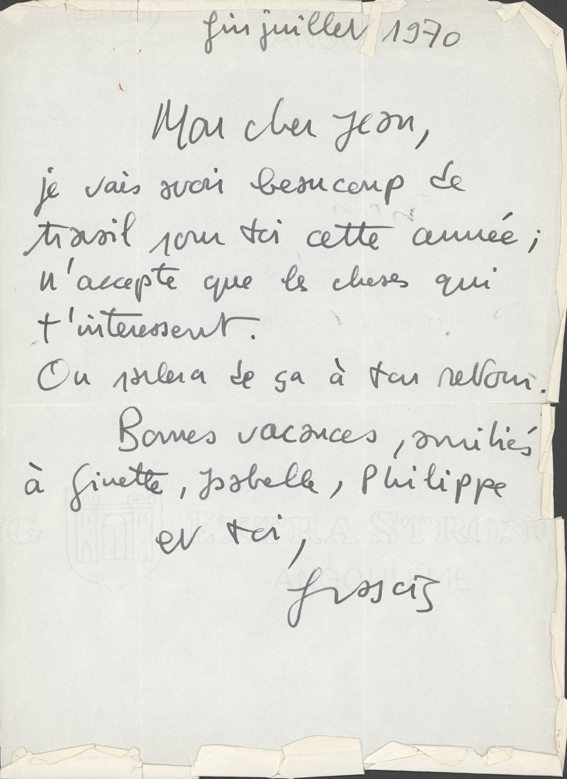 fin juillet 1970
Mon cher Jean,
je vais avoir beaucoup de
travail pour toi cette année ;
n'accepte que les choses qui
t'intéressent.
On parlera de ça à ton retour.
Bonnes vacances, amitiés
à Ginette, Isabelle, Philippe
et toi,